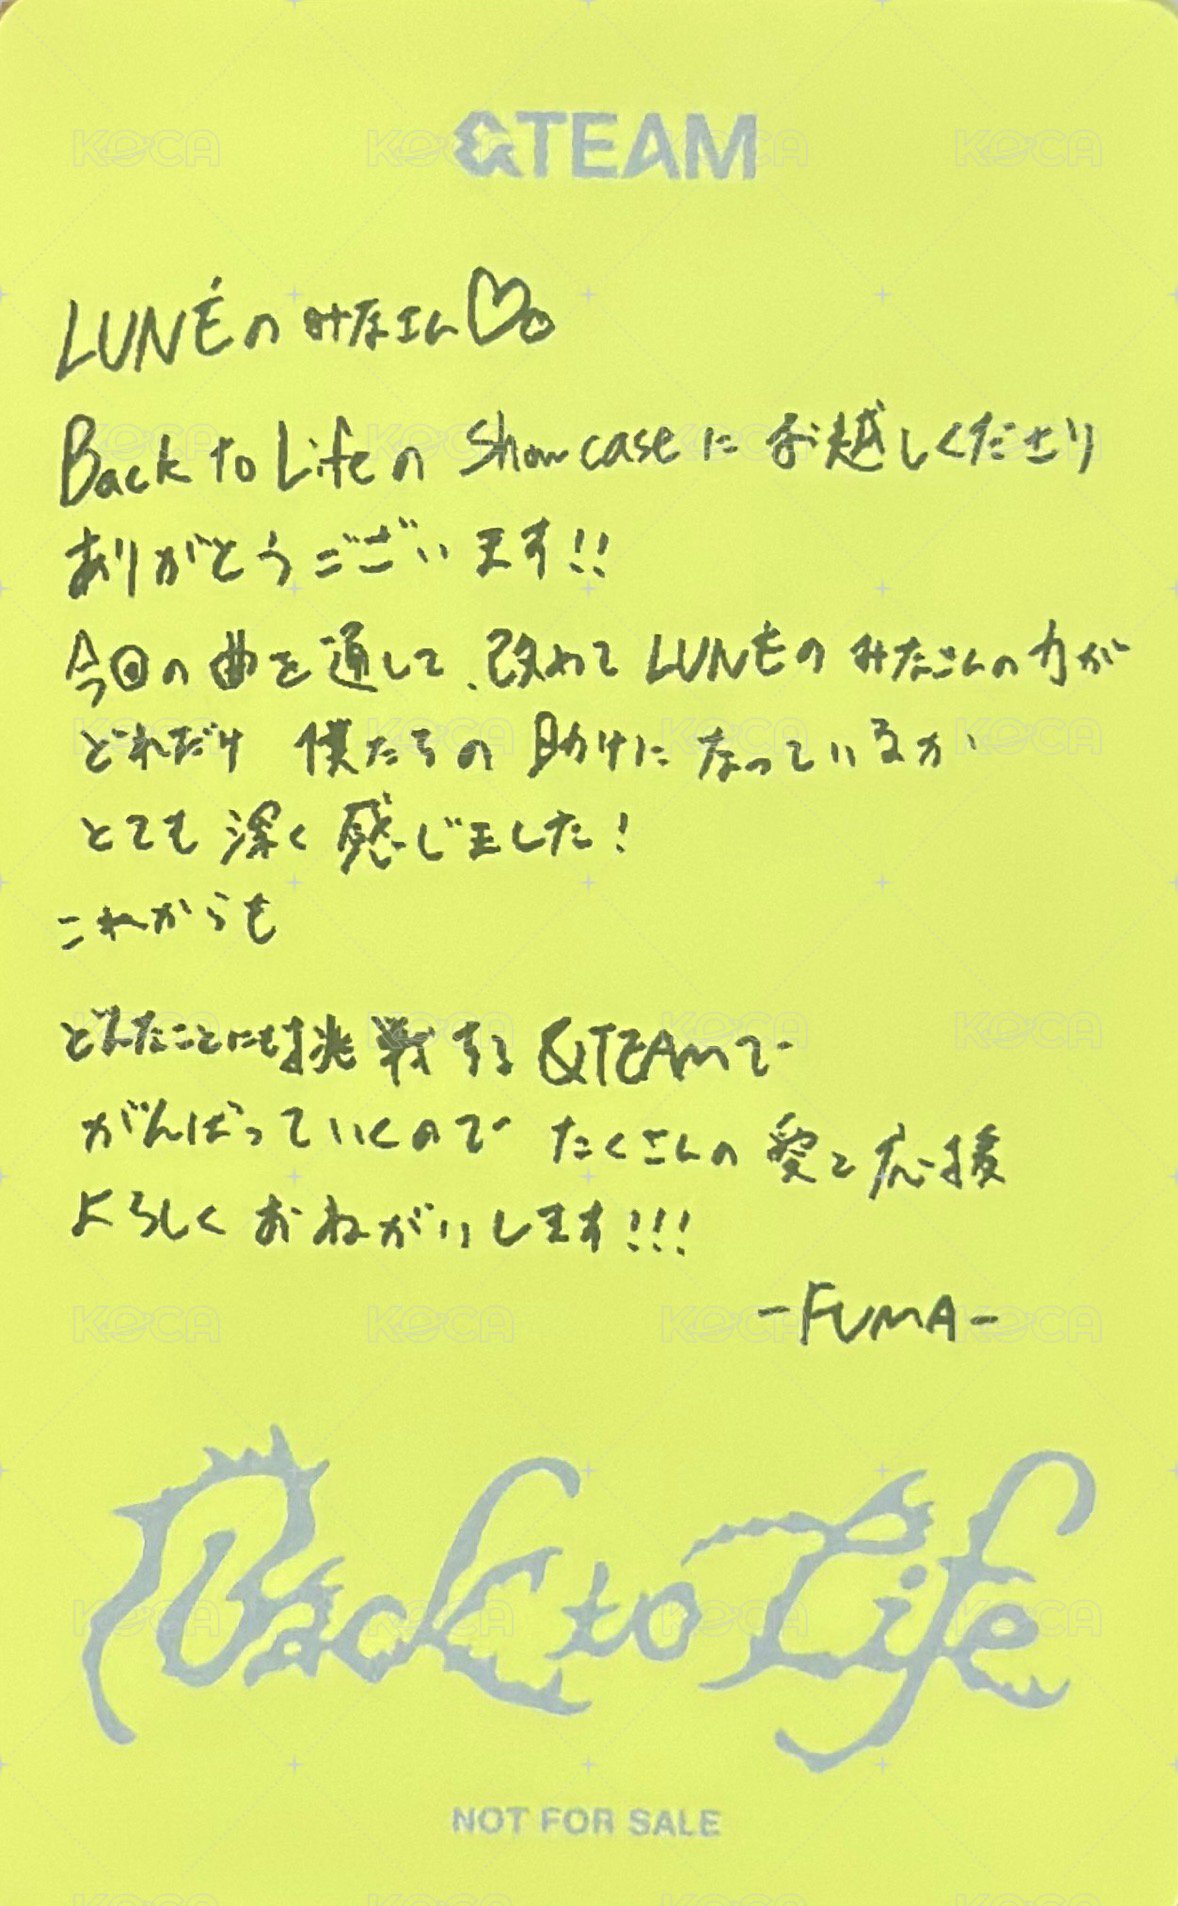 &TEAM
LUNÉのみなさん♡。
Back to Lifeの Showcaseに お越しくださり
ありがとうございます!!
今回の曲を通して、改めて LUNÉの みなさんの力が
どれだけ 僕たちの 助けに なっているか
とても 深く 感じました!
これからも
どんなことにも挑戦する &TEAMで
がんばっていくので たくさんの 愛と応援
よろしく おねがいします!!!
-FUMA-
Back to Life
NOT FOR SALE
KOCA